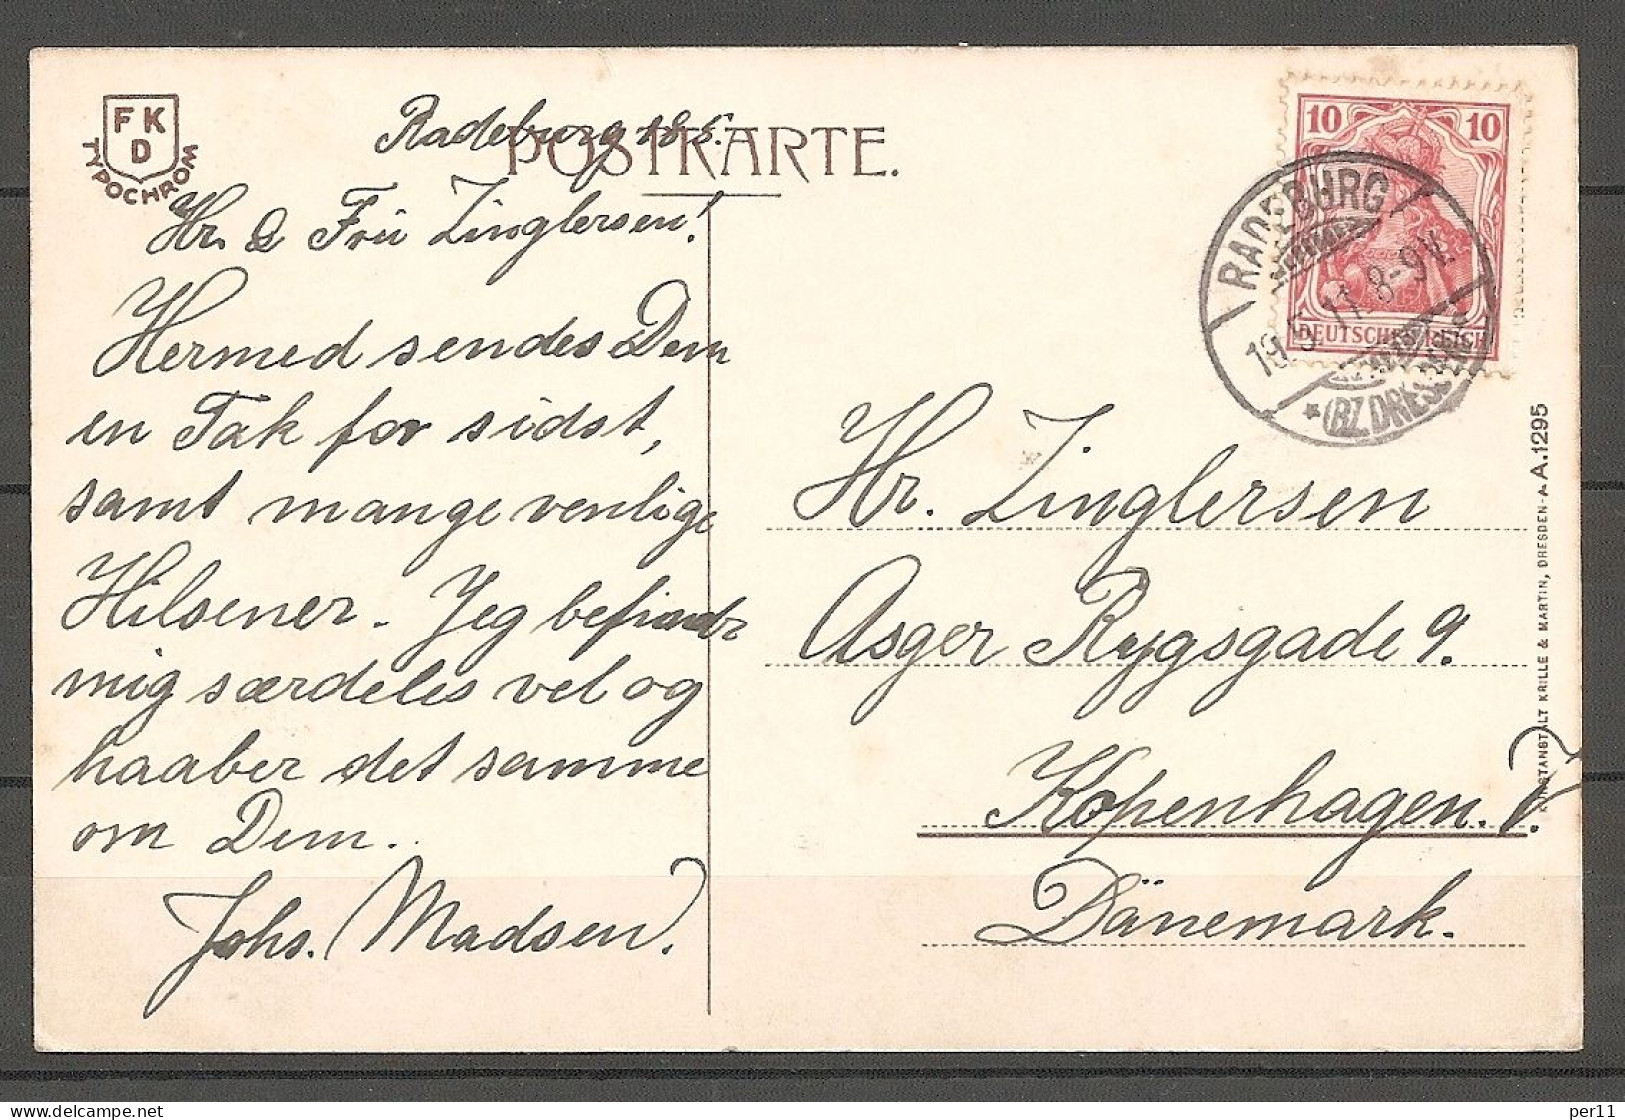 F K
D
TYPOCHROM
POSTKARTE.
Radeburg 18.5.
Hr. & Fru Zinglersen!
Hermed sendes Dem
en Tak for sidst,
samt mange venlige
Hilsener. Jeg befinder
mig særdeles vel og
haaber det samme
om Dem..
Johs. Madsen.
10 10
DEUTSCHES REICH
RADEBURG
19.5.11. 8-9V.
* (BZ. DRESDEN)
Hr. Zinglersen
Asger Rygsgade 9.
Kopenhagen. V.
Dänemark.
KUNSTANSTALT KRILLE & MARTIN, DRESDEN-A. A.1295
per11